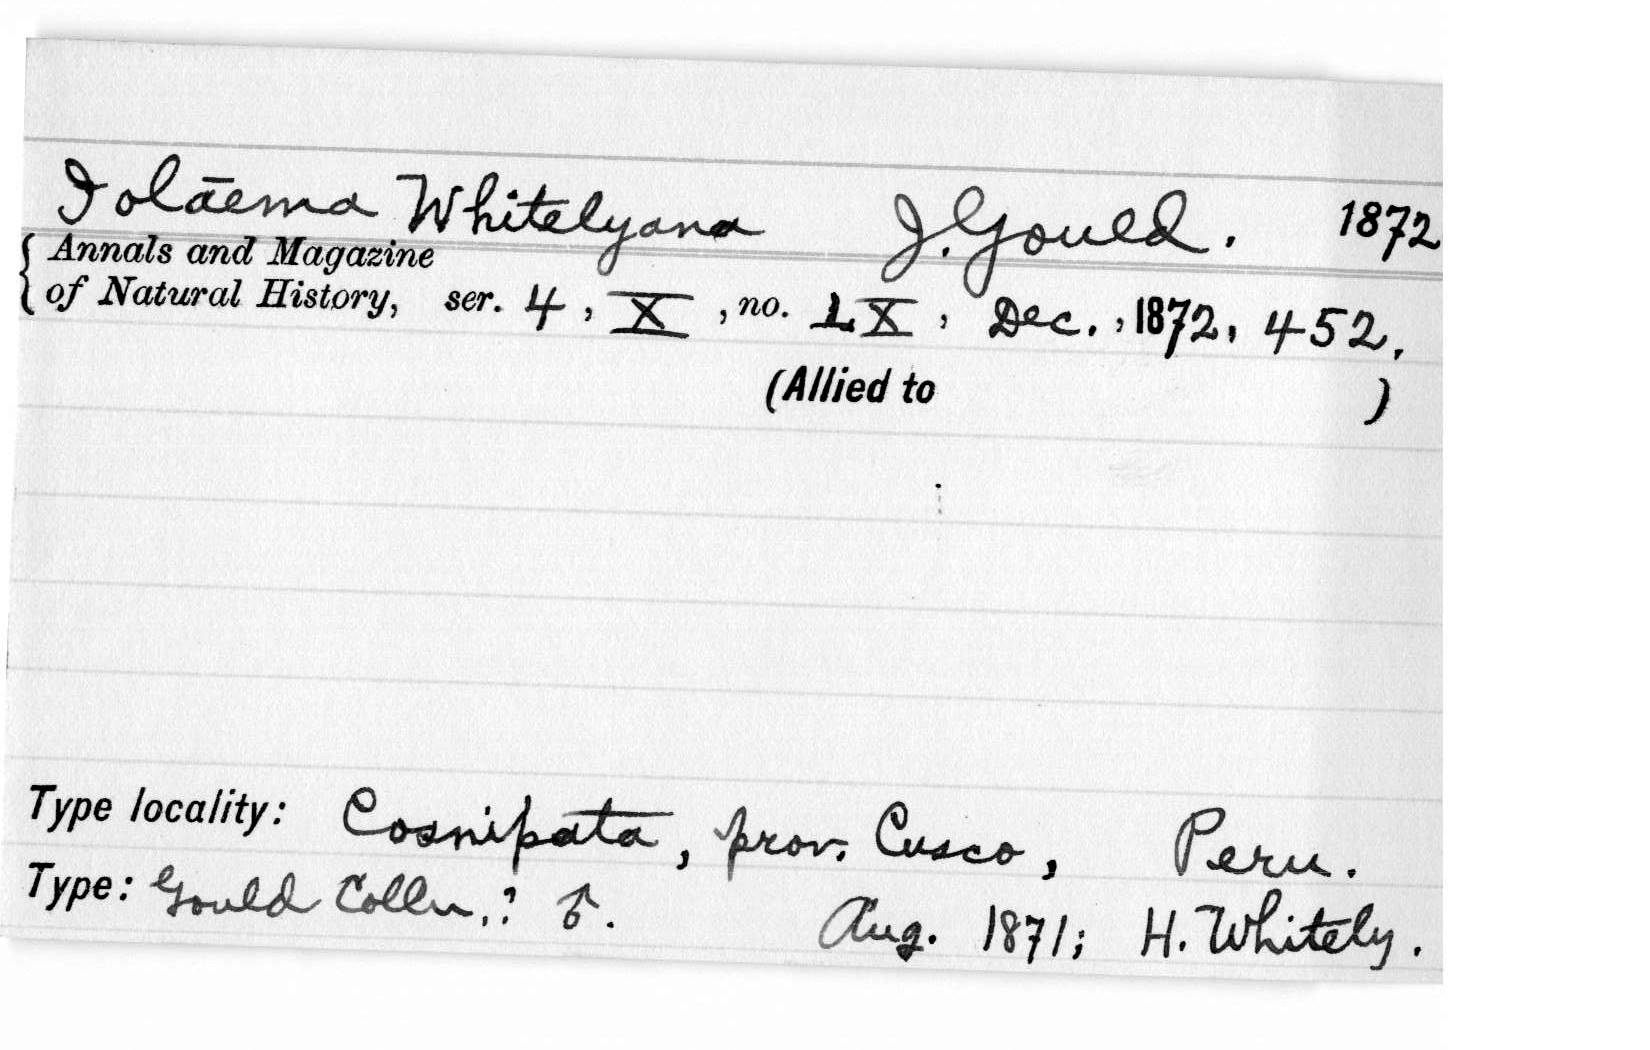 Iolāema Whitelyana J. Gould. 1872
Annals and Magazine
of Natural History, ser. 4, X, no. LX, Dec., 1872, 452.
(Allied to )
Type locality: Cosnipata, prov. Cusco, Peru.
Type: Gould Colln.? ♂. Aug. 1871; H. Whitely.